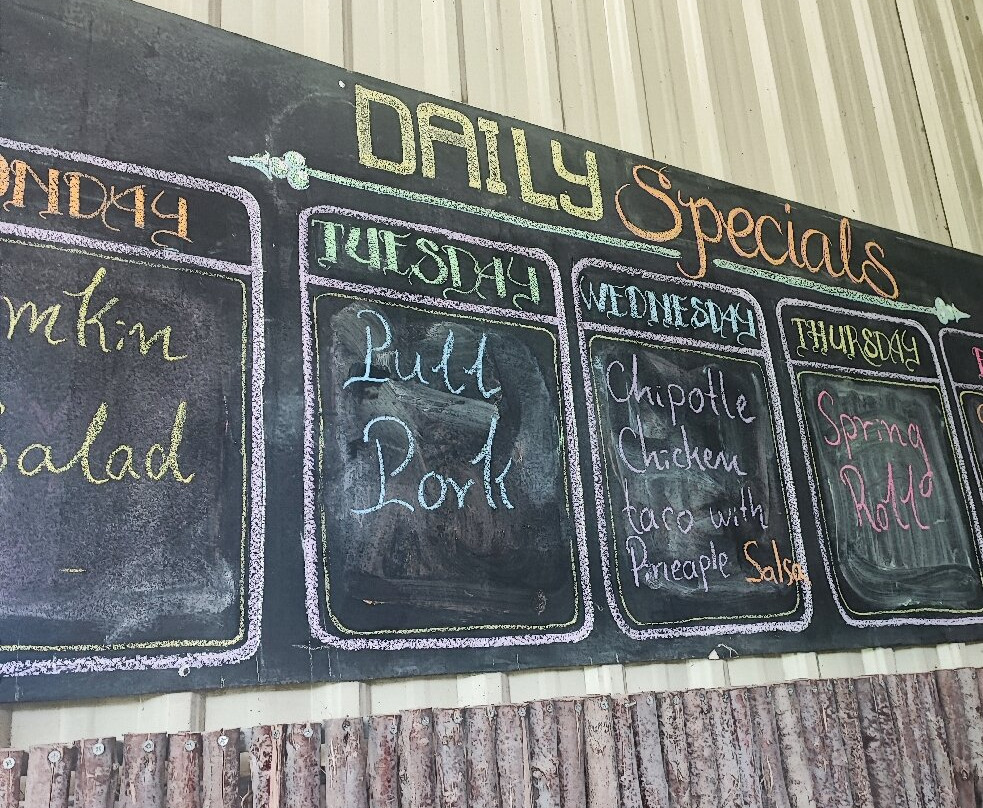 DAILY Specials
ONDAY
mkin
Salad
TUESDAY
Pull
Pork
WEDNESDAY
Chipotle
Chicken
taco with
Pineaple Salsa
THURSDAY
Spring
Roll